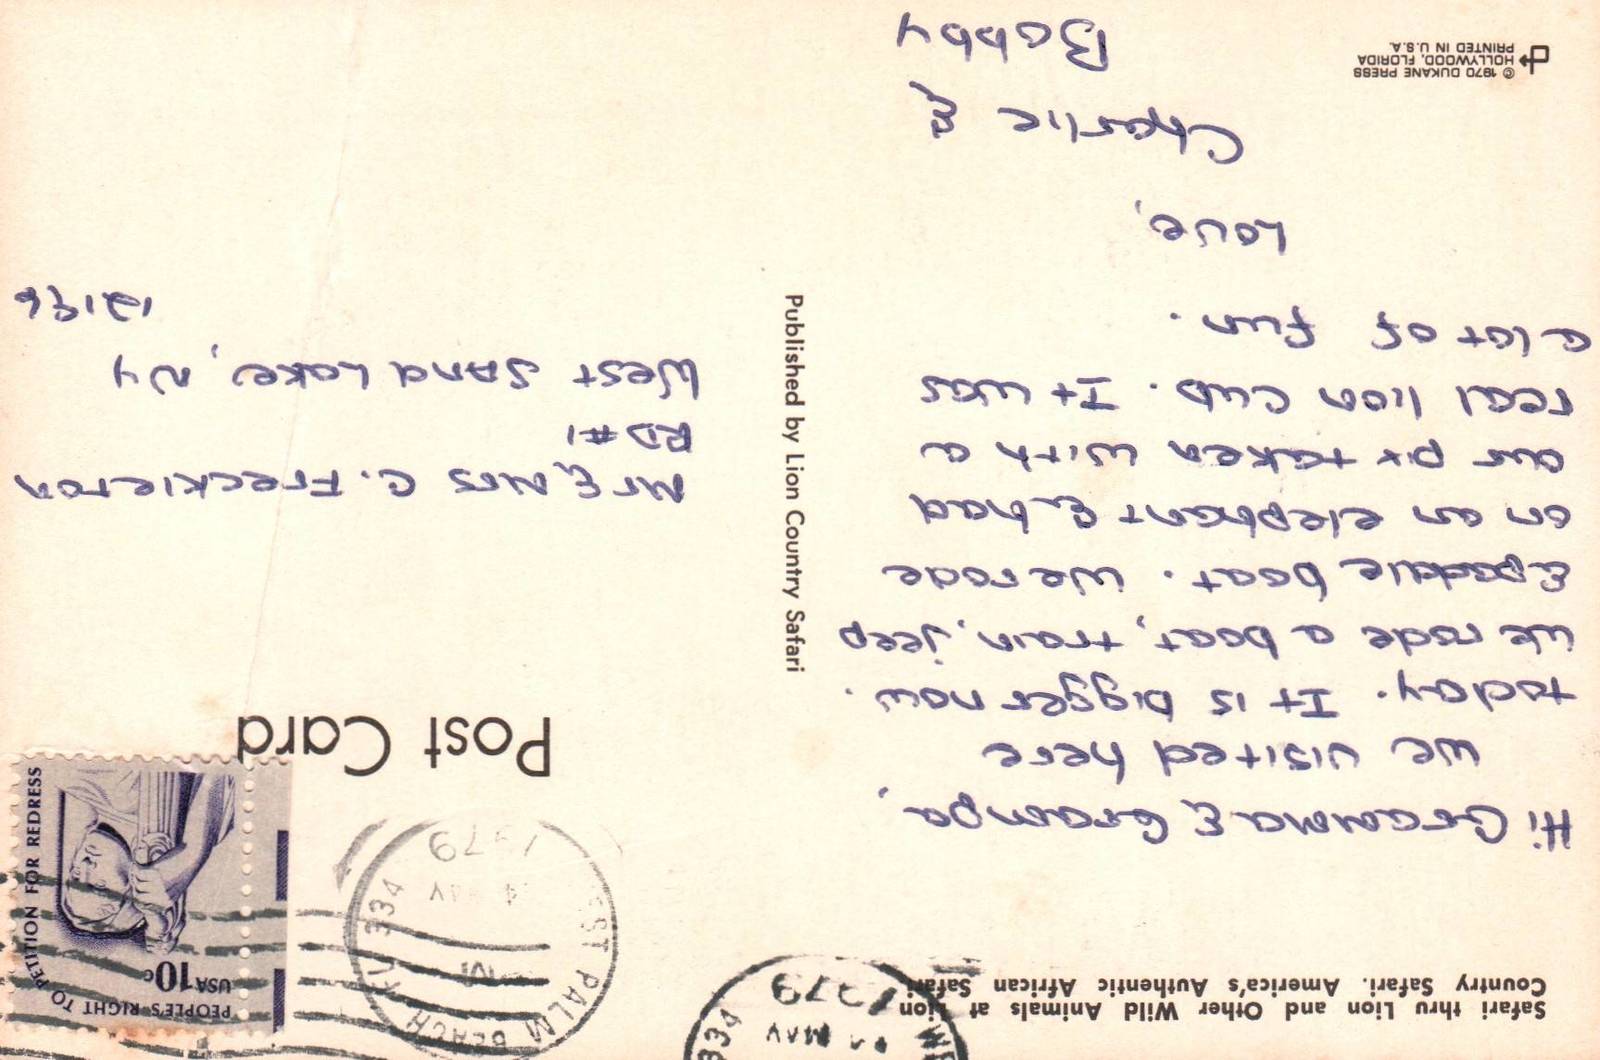 Safari thru Lion and Other Wild Animals at Lion
Country Safari. America's Authentic African Safari
Hi Grandma & Grandpa,
We visited here
today. It is bigger now.
We rode a boat, train, jeep
& paddle boat. We rode
on an elephant & had
our px taken with a
real lion cub. It was
a lot of fun.
Love,
Charlie &
Bobby
© 1970 DUKANE PRESS
HOLLYWOOD, FLORIDA
PRINTED IN U.S.A.
Published by Lion Country Safari
Post Card
WEST PALM BEACH FL 334
MAY
1979
334
MAY
1979
PEOPLE'S RIGHT TO PETITION FOR REDRESS
USA 10c
Mr & Mrs C. Freckleton
RD #1
West Sand Lake, NY
12196